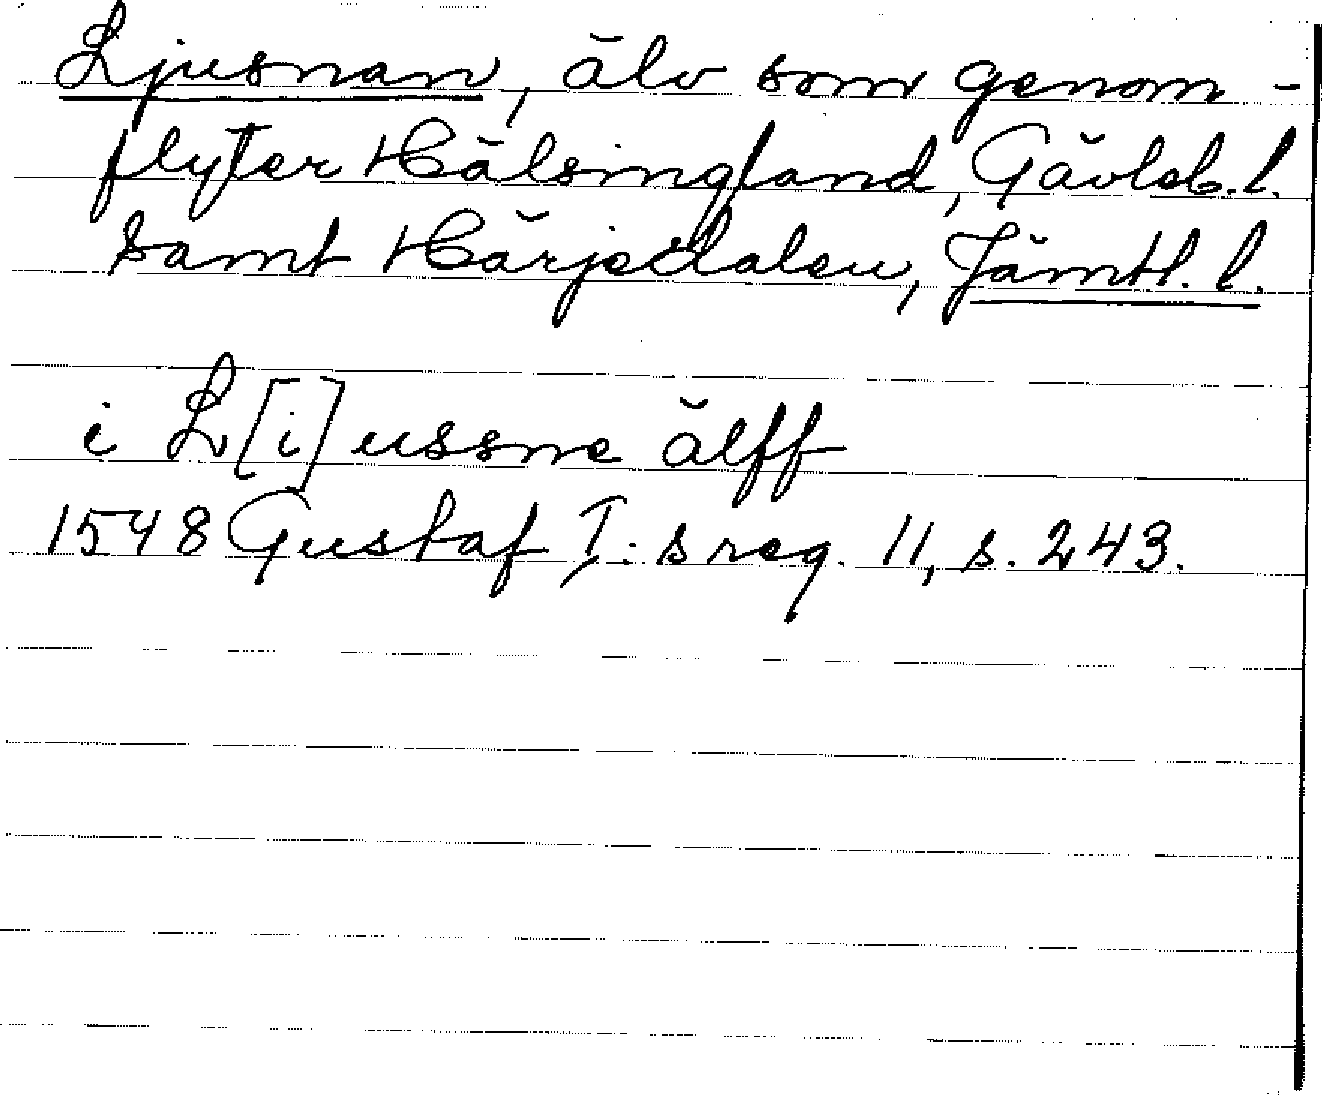 Ljusnan, älv som genom-
flyter Hälsingland, Gävleb. l.
samt Härjedalen, Jämtl. l.
i L[i]ussne älff
1548 Gustaf I:s reg. 11, s. 243.